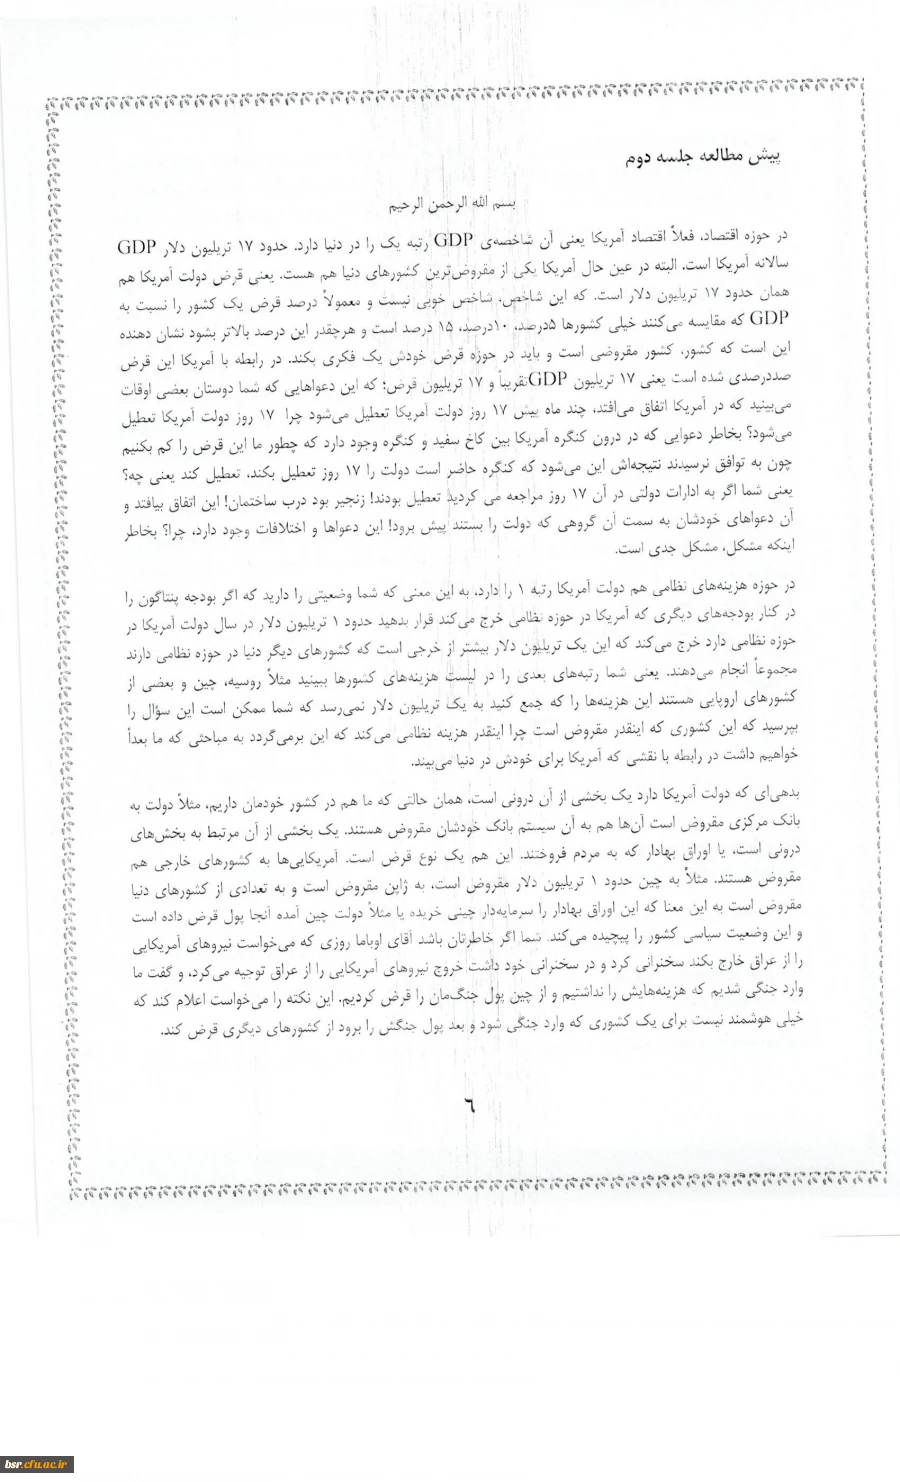 پیش مطالعه جلسه دوم
بسم الله الرحمن الرحیم
در حوزه اقتصاد، فعلاً اقتصاد آمریکا یعنی آن شاخصه‌ی GDP رتبه یک را در دنیا دارد. حدود ۱۷ تریلیون دلار GDP
سالانه آمریکا است. البته در عین حال آمریکا یکی از مقروض‌ترین کشورهای دنیا هم هست. یعنی قرض دولت آمریکا هم
همان حدود ۱۷ تریلیون دلار است. که این شاخص، شاخص خوبی نیست و معمولاً درصد قرض یک کشور را نسبت به
GDP که مقایسه می‌کنند خیلی کشورها ۵درصد، ۱۰درصد، ۱۵ درصد است و هرچقدر این درصد بالاتر بشود نشان دهنده
این است که کشور، کشور مقروضی است و باید در حوزه قرض خودش یک فکری بکند. در رابطه با آمریکا این قرض
صددرصدی شده است یعنی ۱۷ تریلیون GDPتقریباً و ۱۷ تریلیون قرض؛ که این دعواهایی که شما دوستان بعضی اوقات
می‌بینید که در آمریکا اتفاق می‌افتد، چند ماه پیش ۱۷ روز دولت آمریکا تعطیل می‌شود چرا ۱۷ روز دولت آمریکا تعطیل
می‌شود؟ بخاطر دعوایی که در درون کنگره آمریکا بین کاخ سفید و کنگره وجود دارد که چطور ما این قرض را کم بکنیم
چون به توافق نرسیدند نتیجه‌اش این می‌شود که کنگره حاضر است دولت را ۱۷ روز تعطیل بکند، تعطیل کند یعنی چه؟
یعنی شما اگر به ادارات دولتی در آن ۱۷ روز مراجعه می کردید تعطیل بودند! زنجیر بود درب ساختمان! این اتفاق بیافتد و
آن دعواهای خودشان به سمت آن گروهی که دولت را بستند پیش برود! این دعواها و اختلافات وجود دارد، چرا؟ بخاطر
اینکه مشکل، مشکل جدی است.
در حوزه هزینه‌های نظامی هم دولت آمریکا رتبه ۱ را دارد، به این معنی که شما وضعیتی را دارید که اگر بودجه پنتاگون را
در کنار بودجه‌های دیگری که آمریکا در حوزه نظامی خرج می‌کند قرار بدهید حدود ۱ تریلیون دلار در سال دولت آمریکا در
حوزه نظامی دارد خرج می‌کند که این یک تریلیون دلار بیشتر از خرجی است که کشورهای دیگر دنیا در حوزه نظامی دارند
مجموعاً انجام می‌دهند. یعنی شما رتبه‌های بعدی را در لیست هزینه‌های کشورها ببینید مثلاً روسیه، چین و بعضی از
کشورهای اروپایی هستند این هزینه‌ها را که جمع کنید به یک تریلیون دلار نمی‌رسد که شما ممکن است این سؤال را
بپرسید که این کشوری که اینقدر مقروض است چرا اینقدر هزینه نظامی می‌کند که این برمی‌گردد به مباحثی که ما بعداً
خواهیم داشت در رابطه با نقشی که آمریکا برای خودش در دنیا می‌بیند.
بدهی‌ای که دولت آمریکا دارد یک بخشی از آن درونی است، همان حالتی که ما هم در کشور خودمان داریم، مثلاً دولت به
بانک مرکزی مقروض است آن‌ها هم به آن سیستم بانک خودشان مقروض هستند. یک بخشی از آن مرتبط به بخش‌های
درونی است، یا اوراق بهادار که به مردم فروختند. این هم یک نوع قرض است. آمریکایی‌ها به کشورهای خارجی هم
مقروض هستند. مثلاً به چین حدود ۱ تریلیون دلار مقروض است، به ژاپن مقروض است و به تعدادی از کشورهای دنیا
مقروض است به این معنا که این اوراق بهادار را سرمایه‌دار چینی خریده یا مثلاً دولت چین آمده آنجا پول قرض داده است
و این وضعیت سیاسی کشور را پیچیده می‌کند. شما اگر خاطرتان باشد آقای اوباما روزی که می‌خواست نیروهای آمریکایی
را از عراق خارج بکند سخنرانی کرد و در سخنرانی خود داشت خروج نیروهای آمریکایی را از عراق توجیه می‌کرد، و گفت ما
وارد جنگی شدیم که هزینه‌هایش را نداشتیم و از چین پول جنگ‌مان را قرض کردیم. این نکته را می‌خواست اعلام کند که
خیلی هوشمند نیست برای یک کشوری که وارد جنگی شود و بعد پول جنگش را برود از کشورهای دیگری قرض کند.
۶
bsr.cfu.ac.ir